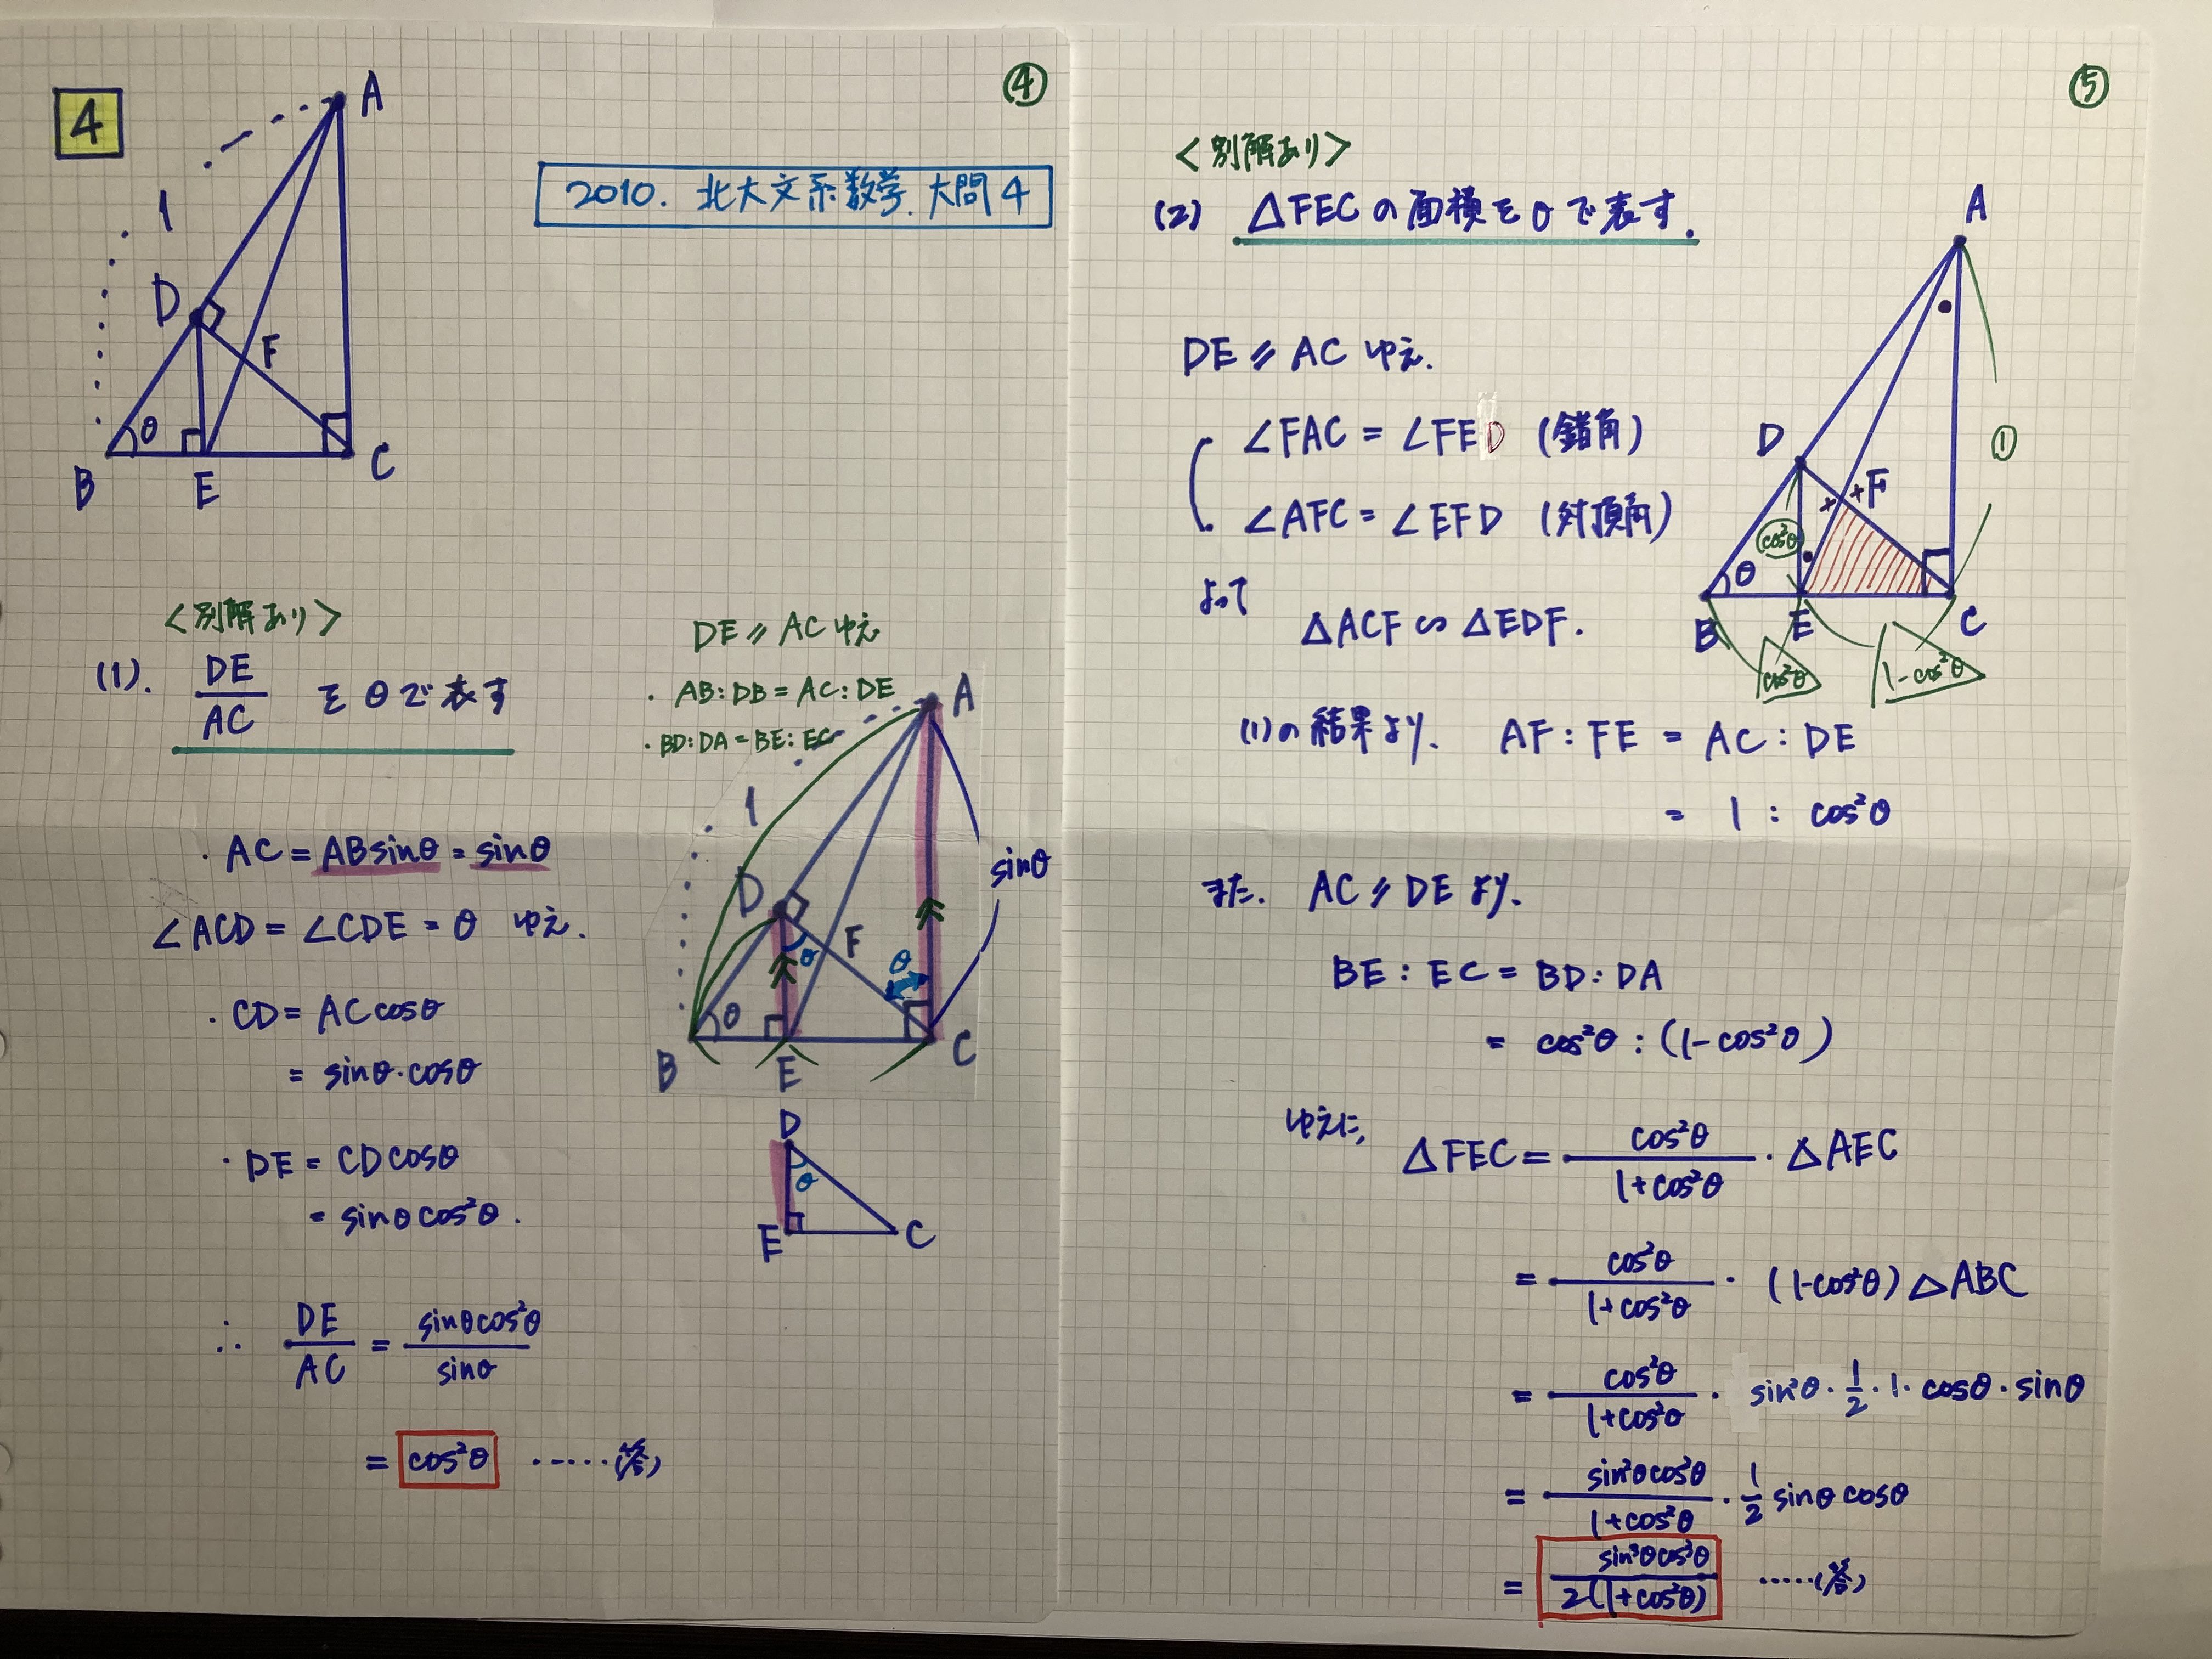 ④
4
A
1
2010. 北大文系数学. 大問4
D
F
θ
B
E
C
<別解あり>
(1). DE/AC をθで表す
DE⫽AC ゆえ
・AB:DB = AC:DE
・BD:DA = BE:EC
A
1
sinθ
D
F
θ
θ
θ
B
E
C
・AC = ABsinθ = sinθ
∠ACD = ∠CDE = θ ゆえ.
・CD = ACcosθ
= sinθ・cosθ
・DE = CDcosθ
= sinθcos²θ.
D
θ
E
C
∴ DE/AC = sinθcos²θ/sinθ
= cos²θ ……(答)
⑤
<別解あり>
(2) △FECの面積をθで表す.
A
DE⫽AC ゆえ.
∠FAC = ∠FED (錯角)
∠AFC = ∠EFD (対頂角)
よって
△ACF ∽ △EDF.
①
D
F
cos²θ
θ
B
E
C
cos²θ
1-cos²θ
(1)の結果より、 AF:FE = AC:DE
= 1 : cos²θ
また. AC⫽DEより、
BE:EC = BD:DA
= cos²θ:(1-cos²θ)
ゆえに、 △FEC = cos²θ/(1+cos²θ)・△AEC
= cos²θ/(1+cos²θ)・(1-cos²θ)△ABC
= cos²θ/(1+cos²θ)・sin²θ・1/2・1・cosθ・sinθ
= sin²θcos²θ/(1+cos²θ)・1/2 sinθcosθ
= sin³θcos³θ/2(1+cos²θ) ……(答)